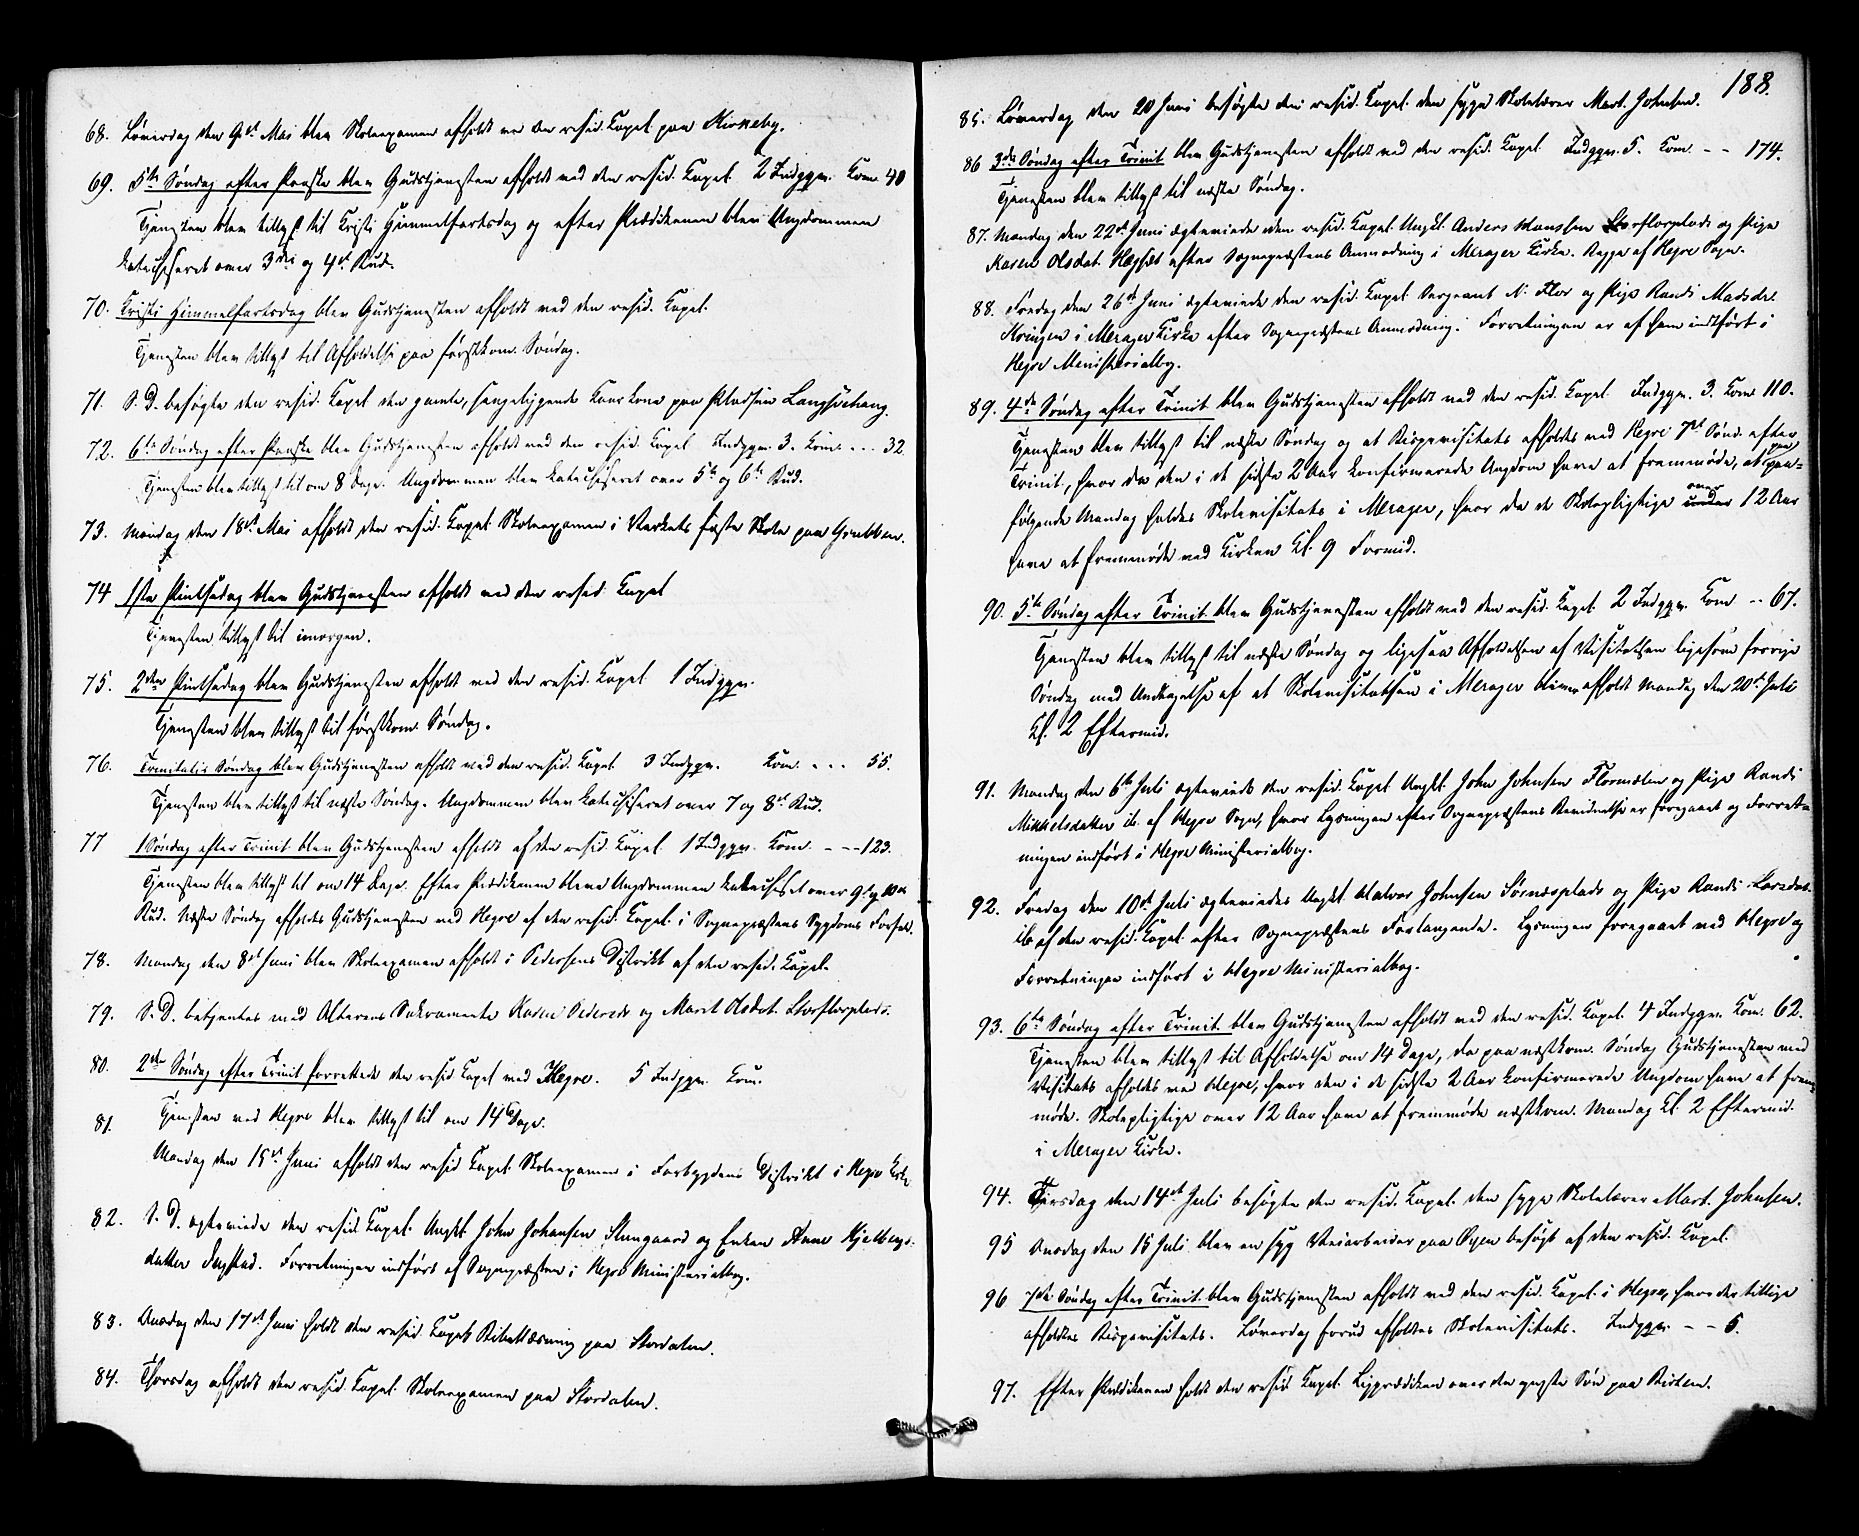 68. Løverdag den 9de Mai blev Skoleexamen afholdt ved den resid. Capel. paa Kirkeby.
69. 5te Søndag efter Paaske blev Gudstjenesten afholdt ved den resid. Capel. 2 Indggn. Kom. 40
Tjenesten blev tillyst til Kristi Himmelfartsdag og efter Prædikenen blev Ungdommen
katechiseret over 3die og 4de Bud.
70. Kristi Himmelfartsdag blev Gudstjenesten afholdt ved den resid. Capel.
Tjenesten blev tillyst til Afholdelse paa førstkom. Søndag.
71. S. D. besøgte den resid. Capel. den gamle, sengeliggende Kaarkone paa Pladsen
72. 6te Søndag efter Paaske blev Gudstjenesten afholdt ved den resid. Capel Indggn. 3. Kom. ... 32
Tjenesten blev tillyst til om 8 Dage. Ungdommen blev katechiseret over 5te og 6te Bud.
73. Mandag den 18de Mai afholdt den resid. Capel. Skoleexamen i Verkets faste Skole paa Grubben.
74 1ste Pintsedag blev Gudstjenesten afholdt ved den resid. Capel
Tjenesten tillyst til imorgen.
75. 2den Pintsedag blev Gudstjenesten afholdt ved den resid. Capel 1 Indggn.
Tjenesten blev tillyst til førstkom. Søndag.
76. Trinitatis Søndag blev Gudstjenesten afholdt ved den resid. Capel. 3 Indggn. Kom. ... 55.
Tjenesten blev tillyst til næste Søndag. Ungdommen blev katechiseret over 7 og 8de Bud.
77 1 Søndag efter Trinit. blev Gudstjenesten afholdt af den resid. Capel. 1 Indggn. Kom. - - - 123.
Tjenesten blev tillyst til om 14 Dage. Efter Prædikenen bleve Ungdommen katechiset over 9de og 10de
Bud. Næste Søndag afholdes Gudstjenesten ved Hegre af den resid. Capel. i Sognepræstens Sygdoms Forfald.
78. Mandag den 8de Juni blev Skoleexamen afholdt i Pedersens Distrikt af den resid. Capel.
79. S. D. betjentes med Alterens Sakramente Karen Pedersdt. og Marit Olsdat. Storflorplads.
80. 2den Søndag efter Trinit forrettede den resid Capel ved Hegre. 5 Indggn. Kom.
81. Tjenesten ved Hegre blev tillyst til om 14 Dage.
Mandag den 15de Juni afholdt den resid Capel. Skoleexamen i Forbygdens Distrikt i Hegre Kirke
82. S. D. ægteviede den resid. Capel. Ungkl. John Johansen Stengaard og Enken Anne
datter Forretningen indført af Sognepræsten i Hegre Ministerialbog.
83. Onsdag den 17de Juni holdt den resid Capel. Bibellæsning paa Stordalen.
84. Thorsdag afholdt den resid. Capel. Skoleexamen paa Stordalen.
188.
85. Løverdag den 20 Juni besøgte den resid. Capel. den syge Skolelærer Mart. Johnsen.
86 3die Søndag efter Trinit blev Gudstjenesten afholdt ved den resid. Capel. Indggn. 5. Kom. - - 174.
Tjenesten blev tillyst til næste Søndag.
87. Mandag den 22de Juni ægteviede den resid. Capel. Ungkl. Anders Monssen Storflorplads og Pige
Karen Olsdat. efter Sognepræstens Anmodning i Merager Kirke. Begge af Hegre Sogn.
88. Fredag den 26de Juni ægteviede den resid. Capel. Sergeant N. Flor og Pige Randi Madsdr.
Kringen i Merager Kirke efter Sognepræstens Anmodning. Forretningen er af ham indført i
Hegre Ministerialbog.
89. 4de Søndag efter Trinit blev Gudstjenesten afholdt ved den resid. Capel. Indggn. 3. Kom. 110.
Tjenesten blev tillyst til næste Søndag og at Bispevisitats afholdes ved Hegre 7de Sønd. efter
Trinit., hvor da den i de sidste 2 Aar konfirmerede Ungdom have at fremmøde, at paa
følgende Mandag holdes Skolevisitats i Merager, hvor da de Skolepligtige under over 12 Aar
have at fremmøde ved Kirken Kl. 9 Formid.
90. 5te Søndag efter Trinit. blev Gudstjenesten afholdt ved den resid. Capel. 2 Indggn. Kom - - 67.
Tjenesten blev tillyst til næste Søndag og ligesaa Afholdelsen af Visitatsen ligesom forrige
Søndag med Undtagelse af at Skolevisitatsen i Merager bliver afholdt Mandag den 20de Juli
Kl. 2 Eftermid.
91. Mandag den 6te Juli ægteviede den resid. Capel. Ungkl. John Johnsen Flormælen og Pige Randi
Mikkelsdatter ib. af Hegre Sogn, hvor Lysningen efter Sognepræstens er foregaaet og Forret-
ningen indført i Hegre Ministerialbog.
92. Fredag den 10de Juli ægteviedes Ungkl. Halvor Johnsen Sørnesplads og Pige Randi Larsdat.
ib. af den resid. Capel. efter Sognepræstens Forlangende. Lysningen foregaaet ved Hegre og
Forretningen indført i Hegre Ministerialbog.
93. 6te Søndag efter Trinit. blev Gudstjenesten afholdt ved den resid. Capel. 4 Indggn. Kom. 62.
Tjenesten blev tillyst til Afholdelse om 14 Dage, da paa næstkom. Søndag Gudstjenesten med
Visitats afholdes ved Hegre, hvor den i de sidste 2 Aar konfirmerede Ungdom have at frem-
møde. Skolepligtige over 12 Aar have at fremmøde næstkom. Mandag Kl. 2 Eftermid.
i Merager Kirke.
94. Tirsdag den 14de Juli besøgte den resid. Capel. den syge Skolelærer Mart. Johnsen.
95 Onsdag den 15 Juli blev en syg Veiarbeider paa Øyen besøgt af den resid. Capel.
96 7de Søndag efter Trinit. blev Gudstjenesten afholdt ved den resid. Capel. i Hegre, hvor der tillige
afholdtes Bispevisitats. Løverdag forud afholdtes Skolevisitats. Indggn. - - 5.
97. Efter Prædikenen holdt den resid Capel. Ligprædiken over den yngste Søn paa